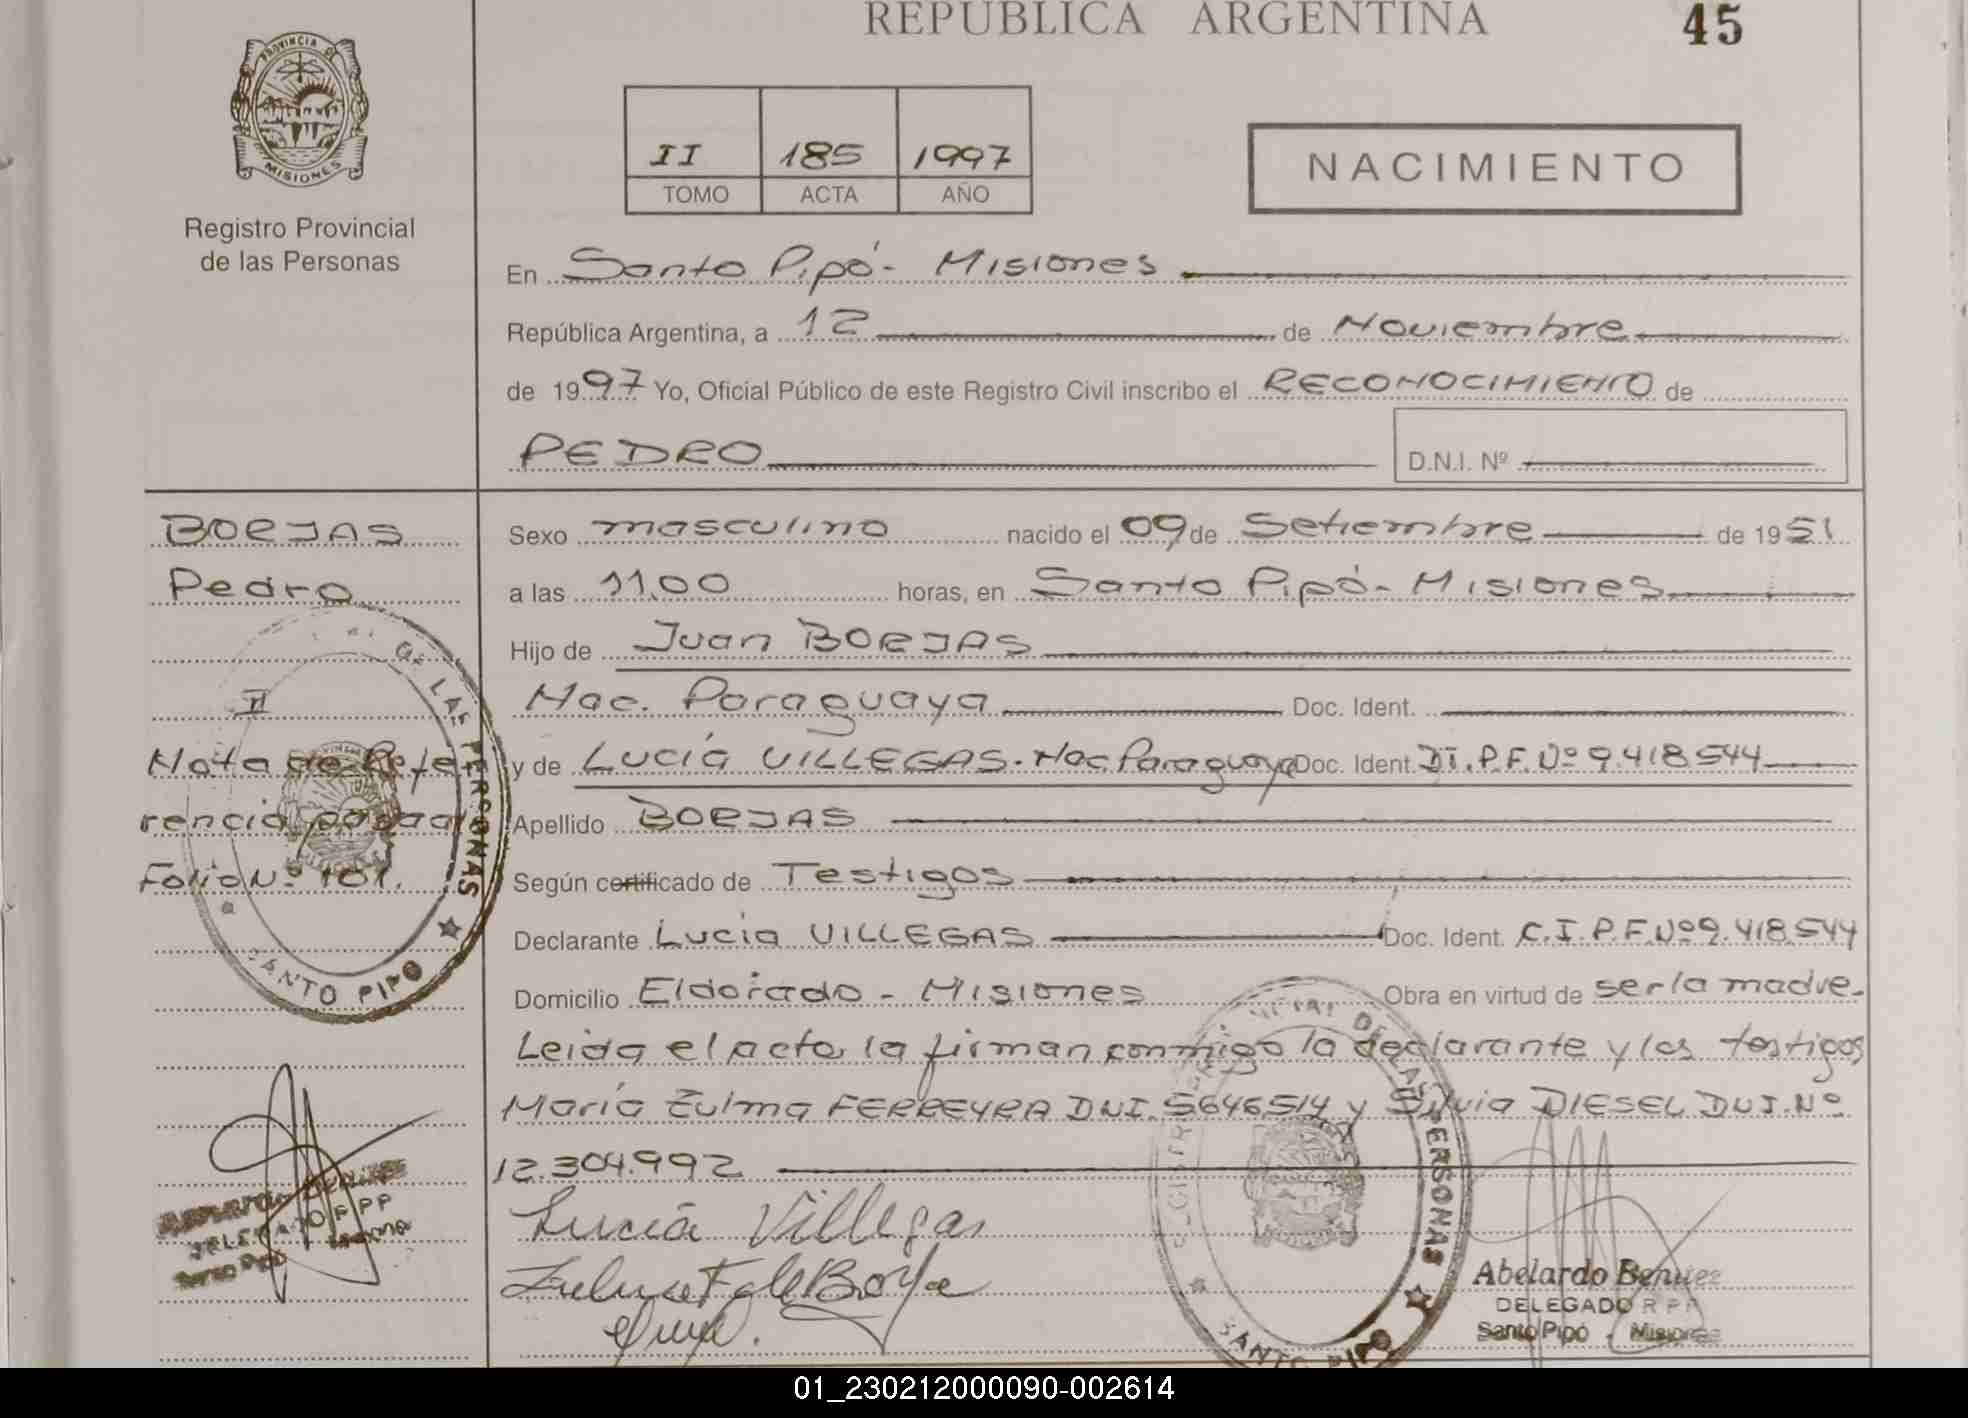 REPUBLICA ARGENTINA
45
PROVINCIA DE MISIONES
Registro Provincial
de las Personas
II 185 1997
TOMO ACTA AÑO
NACIMIENTO
En Santo Pipó - Misiones
República Argentina, a 12 de Noviembre
de 1997 Yo, Oficial Público de este Registro Civil inscribo el RECONOCIMIENTO de
PEDRO D.N.I. Nº
BORJAS
Pedro
II
Nota de Refe
rencia pasa al
Folio Nº 101.
Sexo masculino nacido el 09 de Setiembre de 1951
a las 11,00 horas, en Santo Pipó - Misiones
Hijo de Juan BORJAS
Nac. Paraguaya Doc. Ident.
y de Lucía VILLEGAS. Nac Paraguaya Doc. Ident. DI.P.F. Nº 9.418.544
Apellido BORJAS
Según certificado de Testigos
Declarante Lucia VILLEGAS Doc. Ident. C.I.P.F. Nº 9.418.544
Domicilio Eldorado - Misiones Obra en virtud de ser la madre.
Leida el acta, la firman conmigo la declarante y los testigos
María Zulma FERREYRA DNI. 5646514 y Silvia DIESEL DNI. Nº
12.304.992
Lucía Villegas
DE LAS PERSONAS
SANTO PIPO
DE LAS PERSONAS
SANTO PIPO
DELEGADO R P P
Santo Pipó
Abelardo Benitez
DELEGADO R P P
Santo Pipó - Misiones
01_230212000090-002614